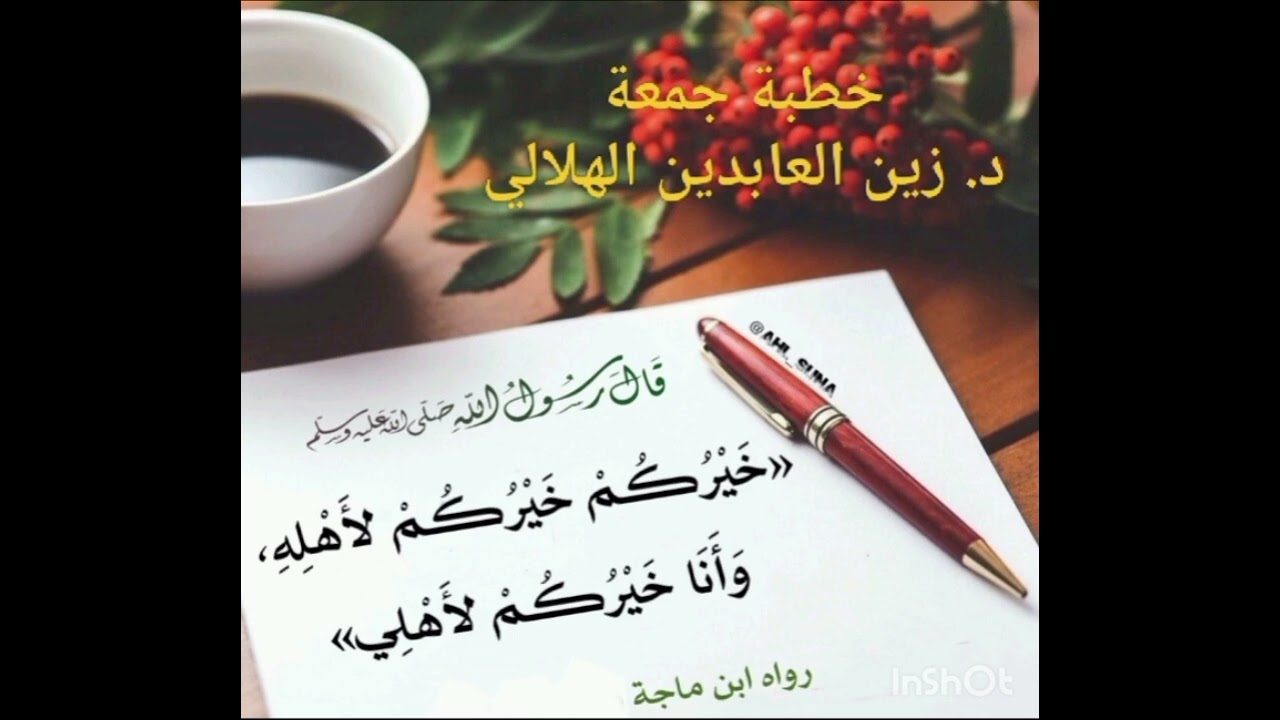 خطبة جمعة
د. زين العابدين الهلالي
@AHL_SUNA
قَالَ رَسُولُ اللَّهِ صَلَّى اللَّهُ عَلَيْهِ وَسَلَّمَ
«خَيْرُكُمْ خَيْرُكُمْ لأَهْلِهِ،
وَأَنَا خَيْرُكُمْ لأَهْلِي»
رواه ابن ماجة
InShOt